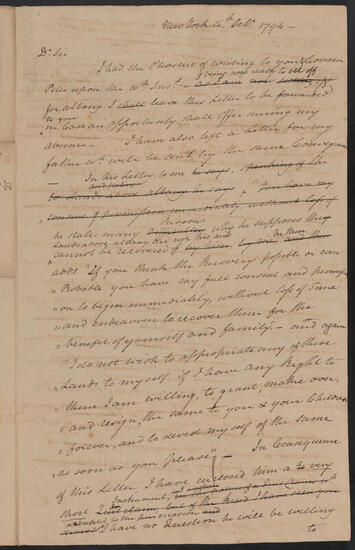 New York 16th Octr. 1794 —
Dr. Sir
I had the Pleasure of writing to you & Cousin
Peter upon the 10th Inst. — & being now ready to set off as I am now setting off
for Albany I shall leave this Letter to be forwarded
to you in Case an opportunity shall offer during my
absence. I have also left a Letter for my
father wch. will be sent by the same Conveyance
— In his Letter to me he says, speaking of the
Lands above albany he says "You have my
consent & permission immediately without loss of
he states many Reasons difficulties why he supposes they
Lands above Albany are not his and
cannot be recovered
adds "If you think the Recovery possible or even
"Probable you have my free consent and permissi-
"on to begin immediately without loss of Time
"and Endeavour to recover them for the
"benefit of yourself and family" — and again
"I do not wish to appropriate any of these
"Lands to myself if I have any Right to
"them I am willing, to grant, make over,
"and resign, the same to you & your Children
"forever, and to devest myself of the same
"as soon as you please" — In Consequence
of this Letter I have enclosed him a very
short Instrument,
I have no Question he will be willing
to